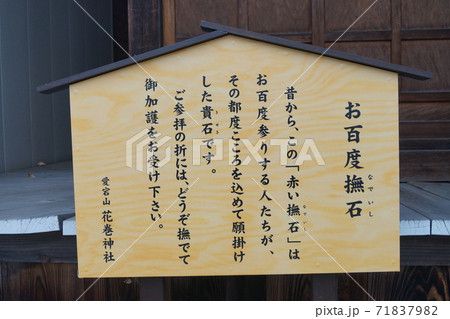 お百度撫石
なでいし
昔から、この「赤い撫石」は
なでいし
お百度参りする人たちが、
その都度こころを込めて願掛け
した貴石です。
ご参拝の折には、どうぞ撫でて
御加護をお受け下さい。
愛宕山 花巻神社
PIXTA
pixta.jp - 71837982